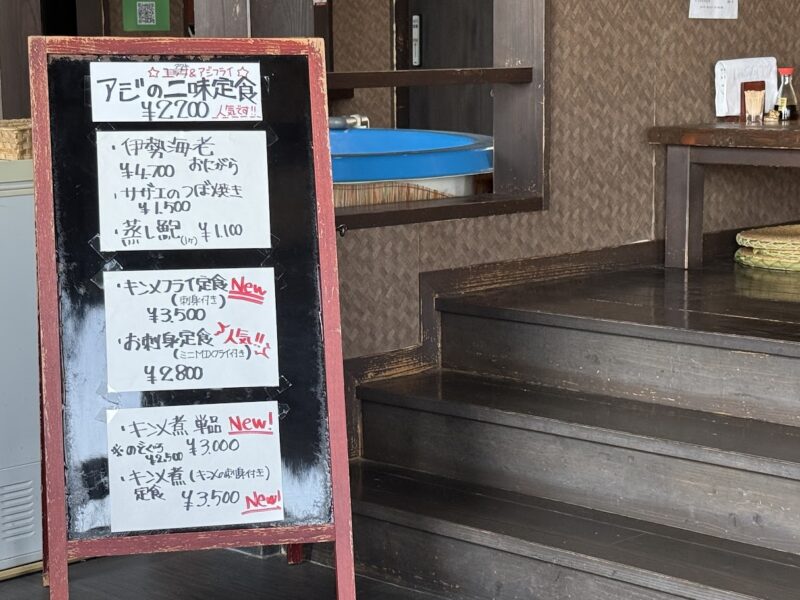 アジフライ☆
アジの二味定食
¥2200 人気です!!
・伊勢海老
¥4.700
・サザエのつぼ焼き
¥1.500
・蒸し鮑(1ヶ) ¥1.100
・キンメフライ定食 New
(刺身付き)
¥3,500
・お刺身定食 人気!!
¥2800
・キンメ煮 単品 New!
¥3,000
¥2,500
・キンメ煮(キンメの刺身付き)
定食 ¥3,500 New!